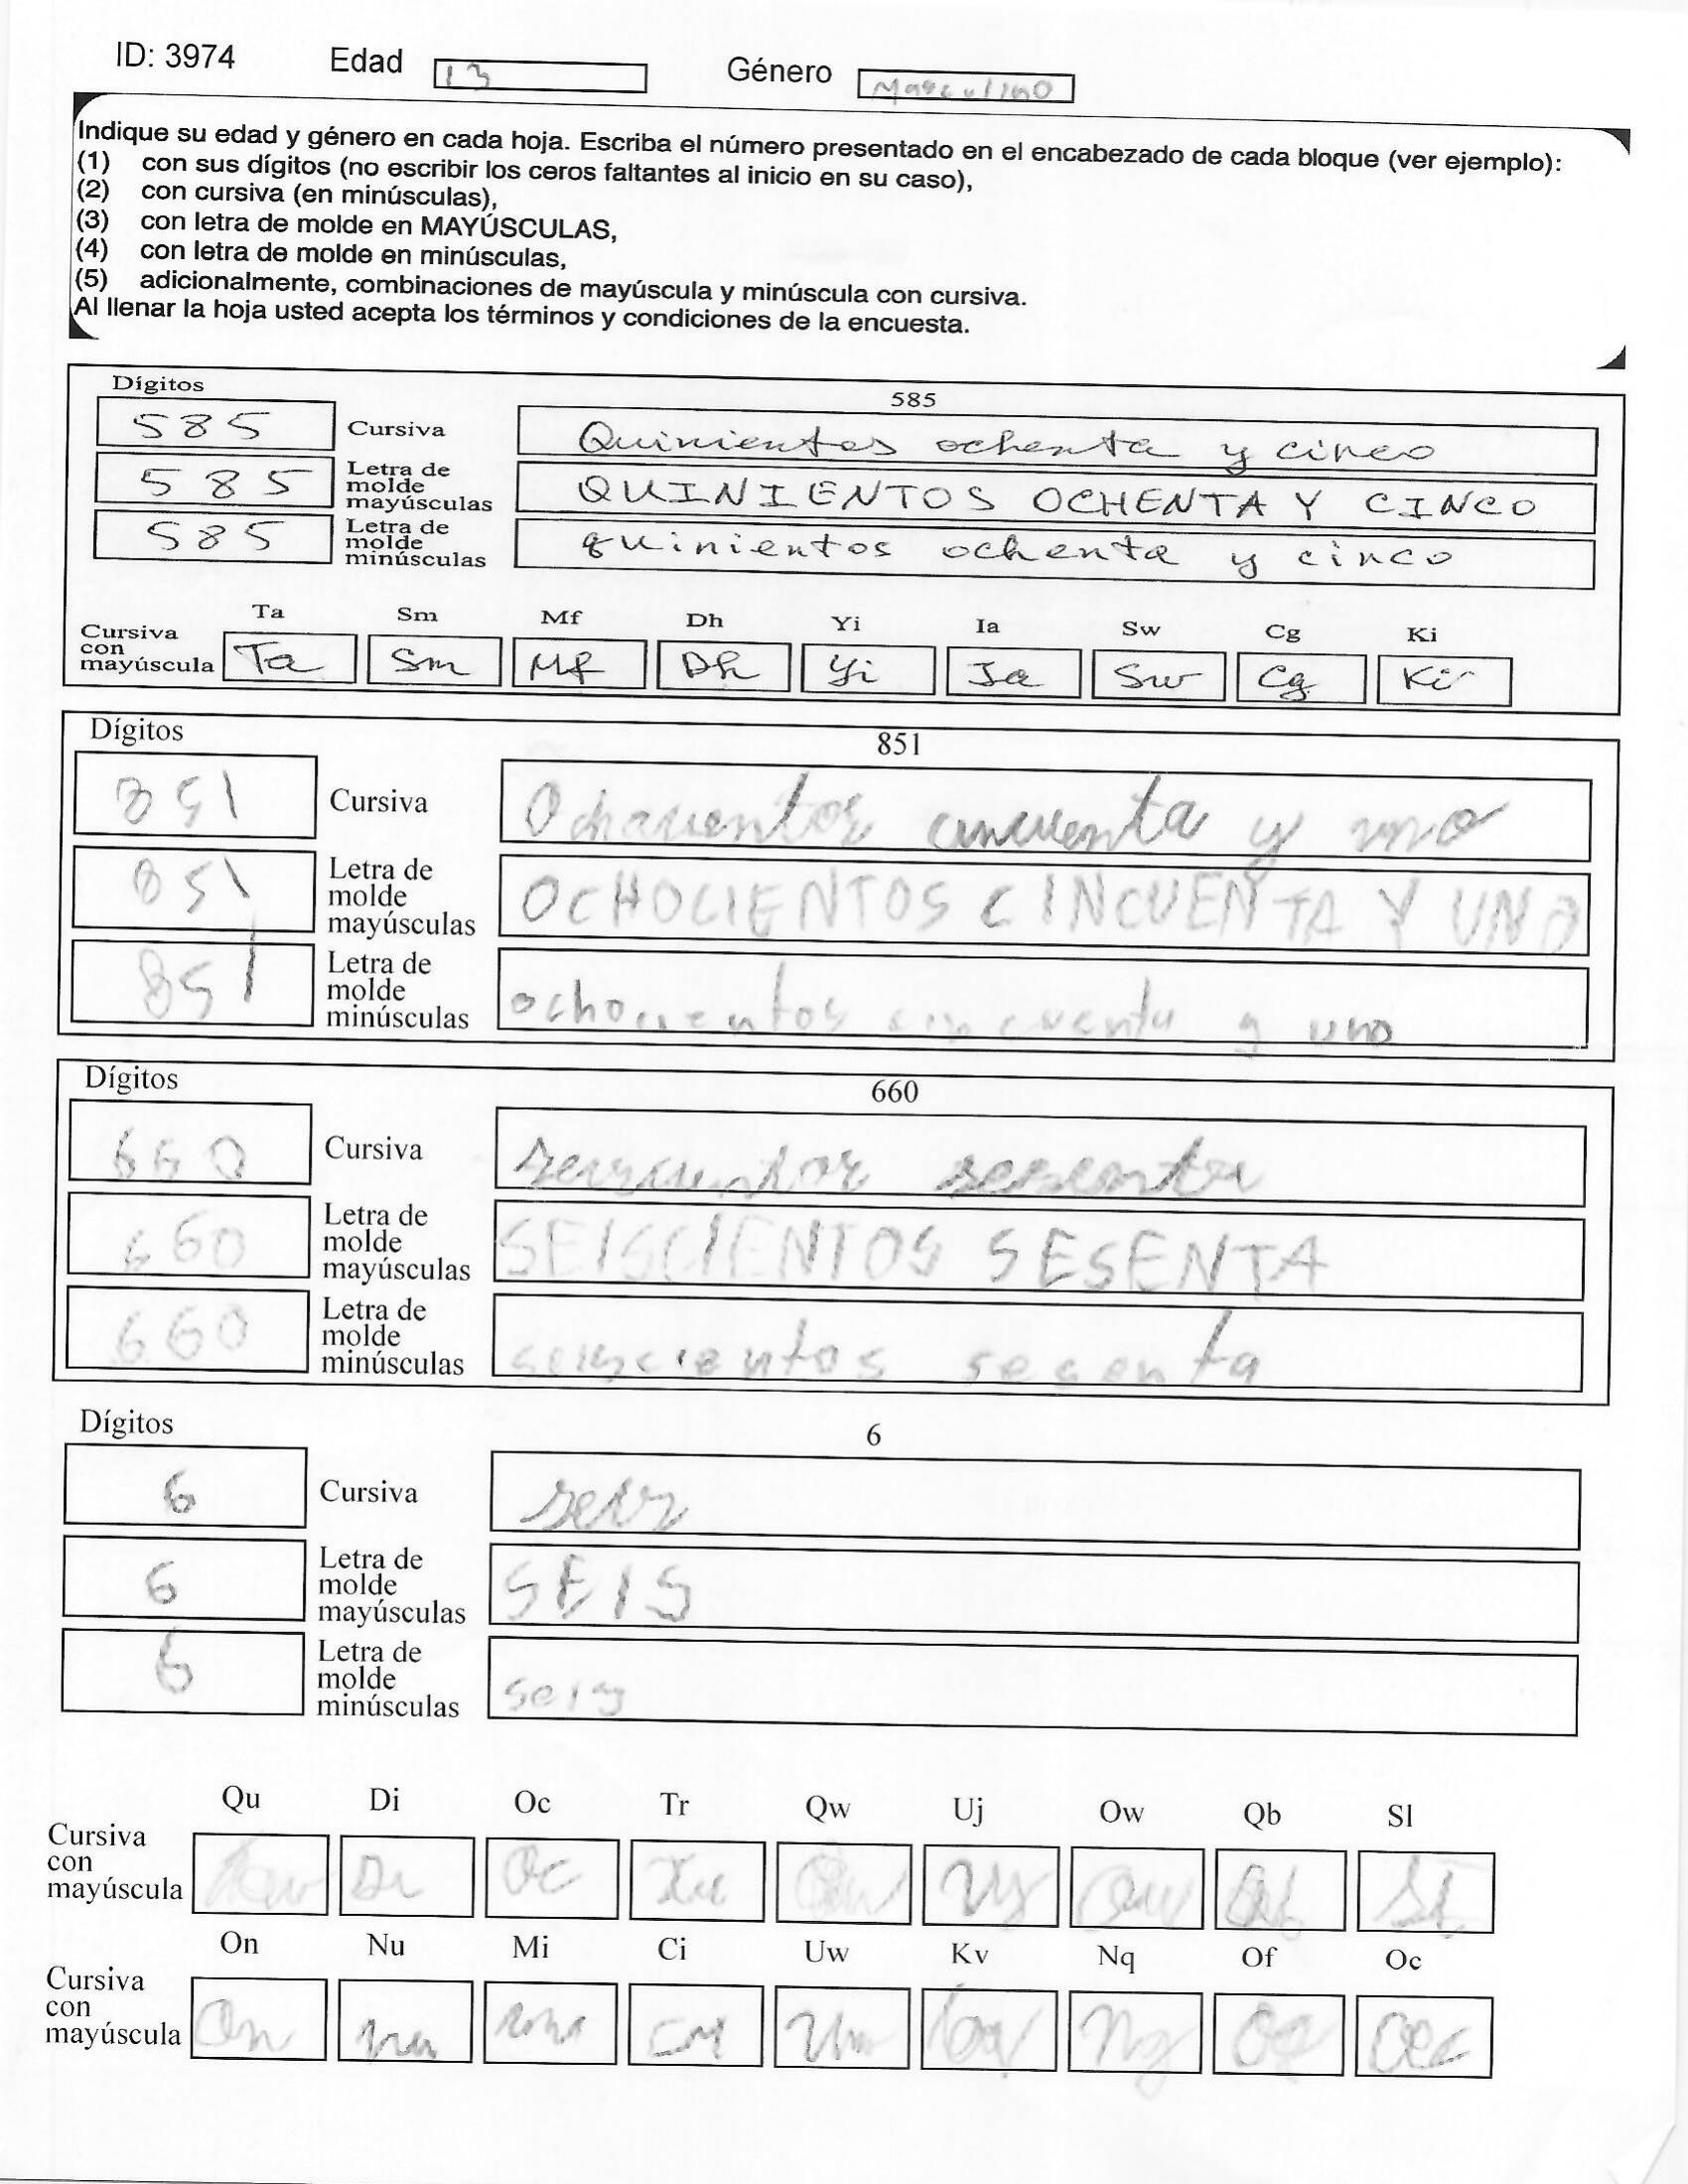 ID: 3974 Edad 13 Género Masculino
Indique su edad y género en cada hoja. Escriba el número presentado en el encabezado de cada bloque (ver ejemplo):
(1) con sus dígitos (no escribir los ceros faltantes al inicio en su caso),
(2) con cursiva (en minúsculas),
(3) con letra de molde en MAYÚSCULAS,
(4) con letra de molde en minúsculas,
(5) adicionalmente, combinaciones de mayúscula y minúscula con cursiva.
Al llenar la hoja usted acepta los términos y condiciones de la encuesta.
Dígitos 585
585 Cursiva Quinientos ochenta y cinco
585 Letra de molde mayúsculas QUINIENTOS OCHENTA Y CINCO
585 Letra de molde minúsculas quinientos ochenta y cinco
Ta Sm Mf Dh Yi Ia Sw Cg Ki
Cursiva con mayúscula Ta Sm Mf Dh Yi Ia Sw Cg Ki
Dígitos 851
851 Cursiva cincuenta y uno
851 Letra de molde mayúsculas OCHOCIENTOS CINCUENTA Y UNO
851 Letra de molde minúsculas ochocientos cincuenta y uno
Dígitos 660
660 Cursiva seiscientos sesenta
660 Letra de molde mayúsculas SEISCIENTOS SESENTA
660 Letra de molde minúsculas seiscientos sesenta
Dígitos 6
6 Cursiva seis
6 Letra de molde mayúsculas SEIS
6 Letra de molde minúsculas seis
Qu Di Oc Tr Qw Uj Ow Qb Sl
Cursiva con mayúscula Di Oc Uj Ow Sl
On Nu Mi Ci Uw Kv Nq Of Oc
Cursiva con mayúscula On Nu Ci Uw Nq Of Oc